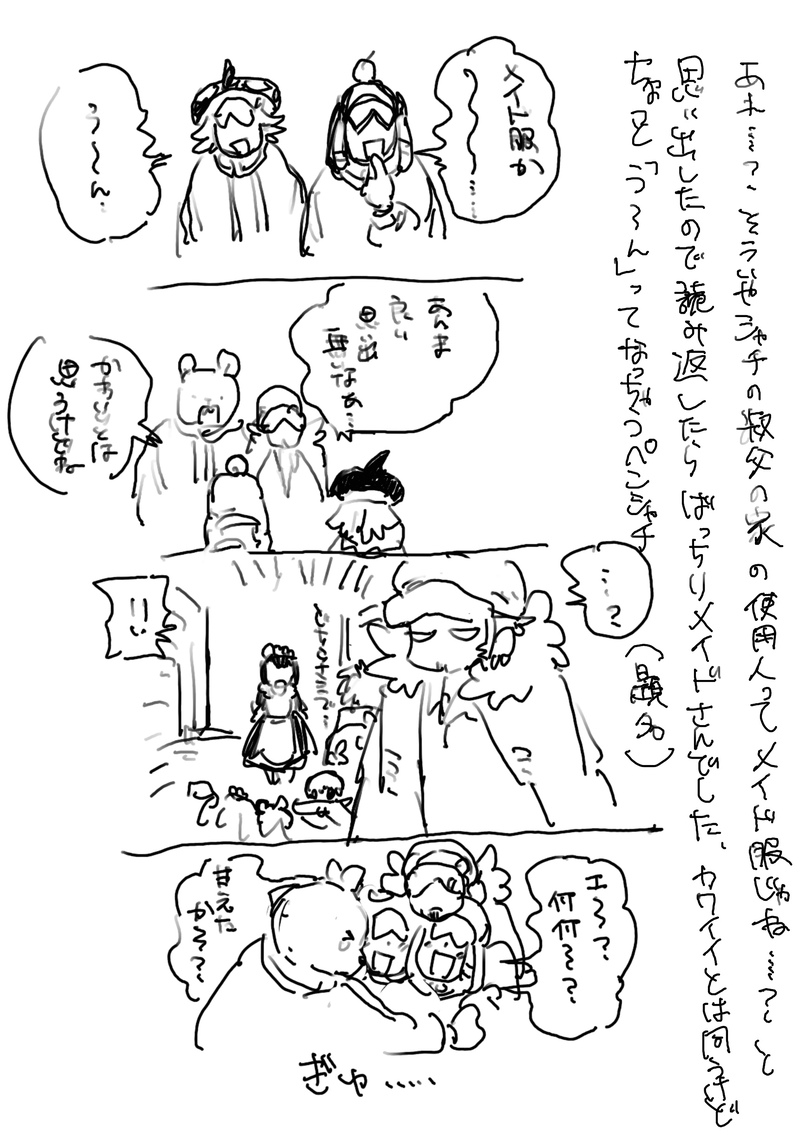 あれ……?、そういやシャチの叔父の家の使用人ってメイド服じゃね……?と
思い出したので読み返したらばっちりメイドさんでした、カワイイとは思うけど
ちょっと「う〜ん」ってなっちゃうペンシャチ
(題名)
メイド服か
〜〜……
う〜〜ん、
あんま
良い
思い出
無いなぁ…
かわいいとは
思うけどね
……?
!!
エ〜〜?
何何〜〜?
甘えた
か〜〜?
ぎゅ……